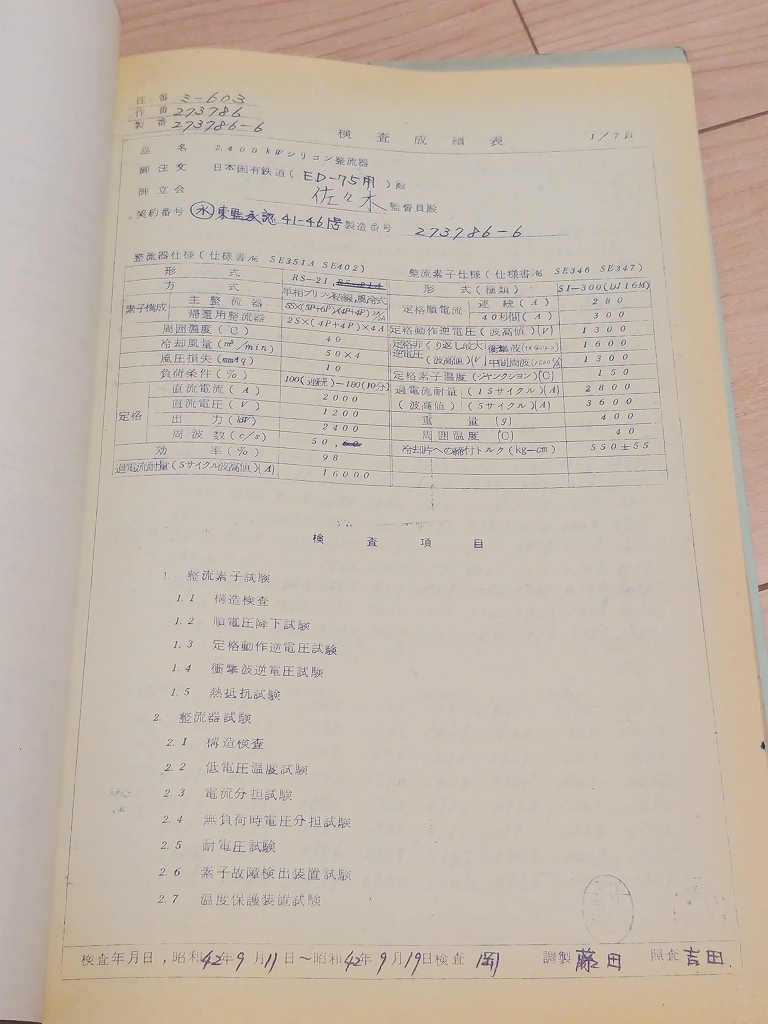 注番 ミ-603
作番 273786
製番 273786-6
検査成績表 1/7頁
品名 2,400kWシリコン整流器
御注文 日本国有鉄道(ED-75用)殿
御立会 佐々木 監督員殿
契約番号 水 東監承認 41-46号 製造番号 273786-6
整流器仕様(仕様書№ SE351A SE402)
形式 RS-21,
方式 単相ブリッジ結線,風冷式
素子構成 主整流器
帰還用整流器 2S×(4P+4P)×4A
周囲温度(℃) 40
冷却風量(m³/min) 50×4
風圧損失(mmAq)
負荷条件(%) 100(連続)-180(10分)
定格 直流電流(A) 2000
直流電圧(V) 1200
出力(kW) 2400
周波数(c/s) 50,60
効率(%) 98
過電流耐量(5サイクル波高値)(A) 16000
整流素子仕様(仕様書№ SE346 SE347)
形式(種類) SI-300(DJ16M)
定格順電流 連続(A) 280
40秒間(A) 300
定格動作逆電圧(波高値)(V) 1300
定格非くり返し最大逆電圧(波高値)(V) 衝撃波 1600
中間周波 1300
定格素子温度(ジャンクション)(℃) 150
過電流耐量(1.5サイクル)(A) 2800
(波高値)(5サイクル)(A) 3600
重量(g) 400
周囲温度(℃) 40
冷却片への締付トルク(kg-cm) 550±55
検査項目
1. 整流素子試験
1.1 構造検査
1.2 順電圧降下試験
1.3 定格動作逆電圧試験
1.4 衝撃波逆電圧試験
1.5 熱抵抗試験
2. 整流器試験
2.1 構造検査
2.2 低電圧温度試験
2.3 電流分担試験
2.4 無負荷時電圧分担試験
2.5 耐電圧試験
2.6 素子故障検出装置試験
2.7 温度保護装置試験
検査年月日,昭和42年9月11日~昭和42年9月19日 検査 岡 調製 藤田 照査 吉田.